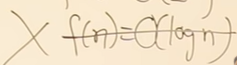 X f(n)=O(log n)